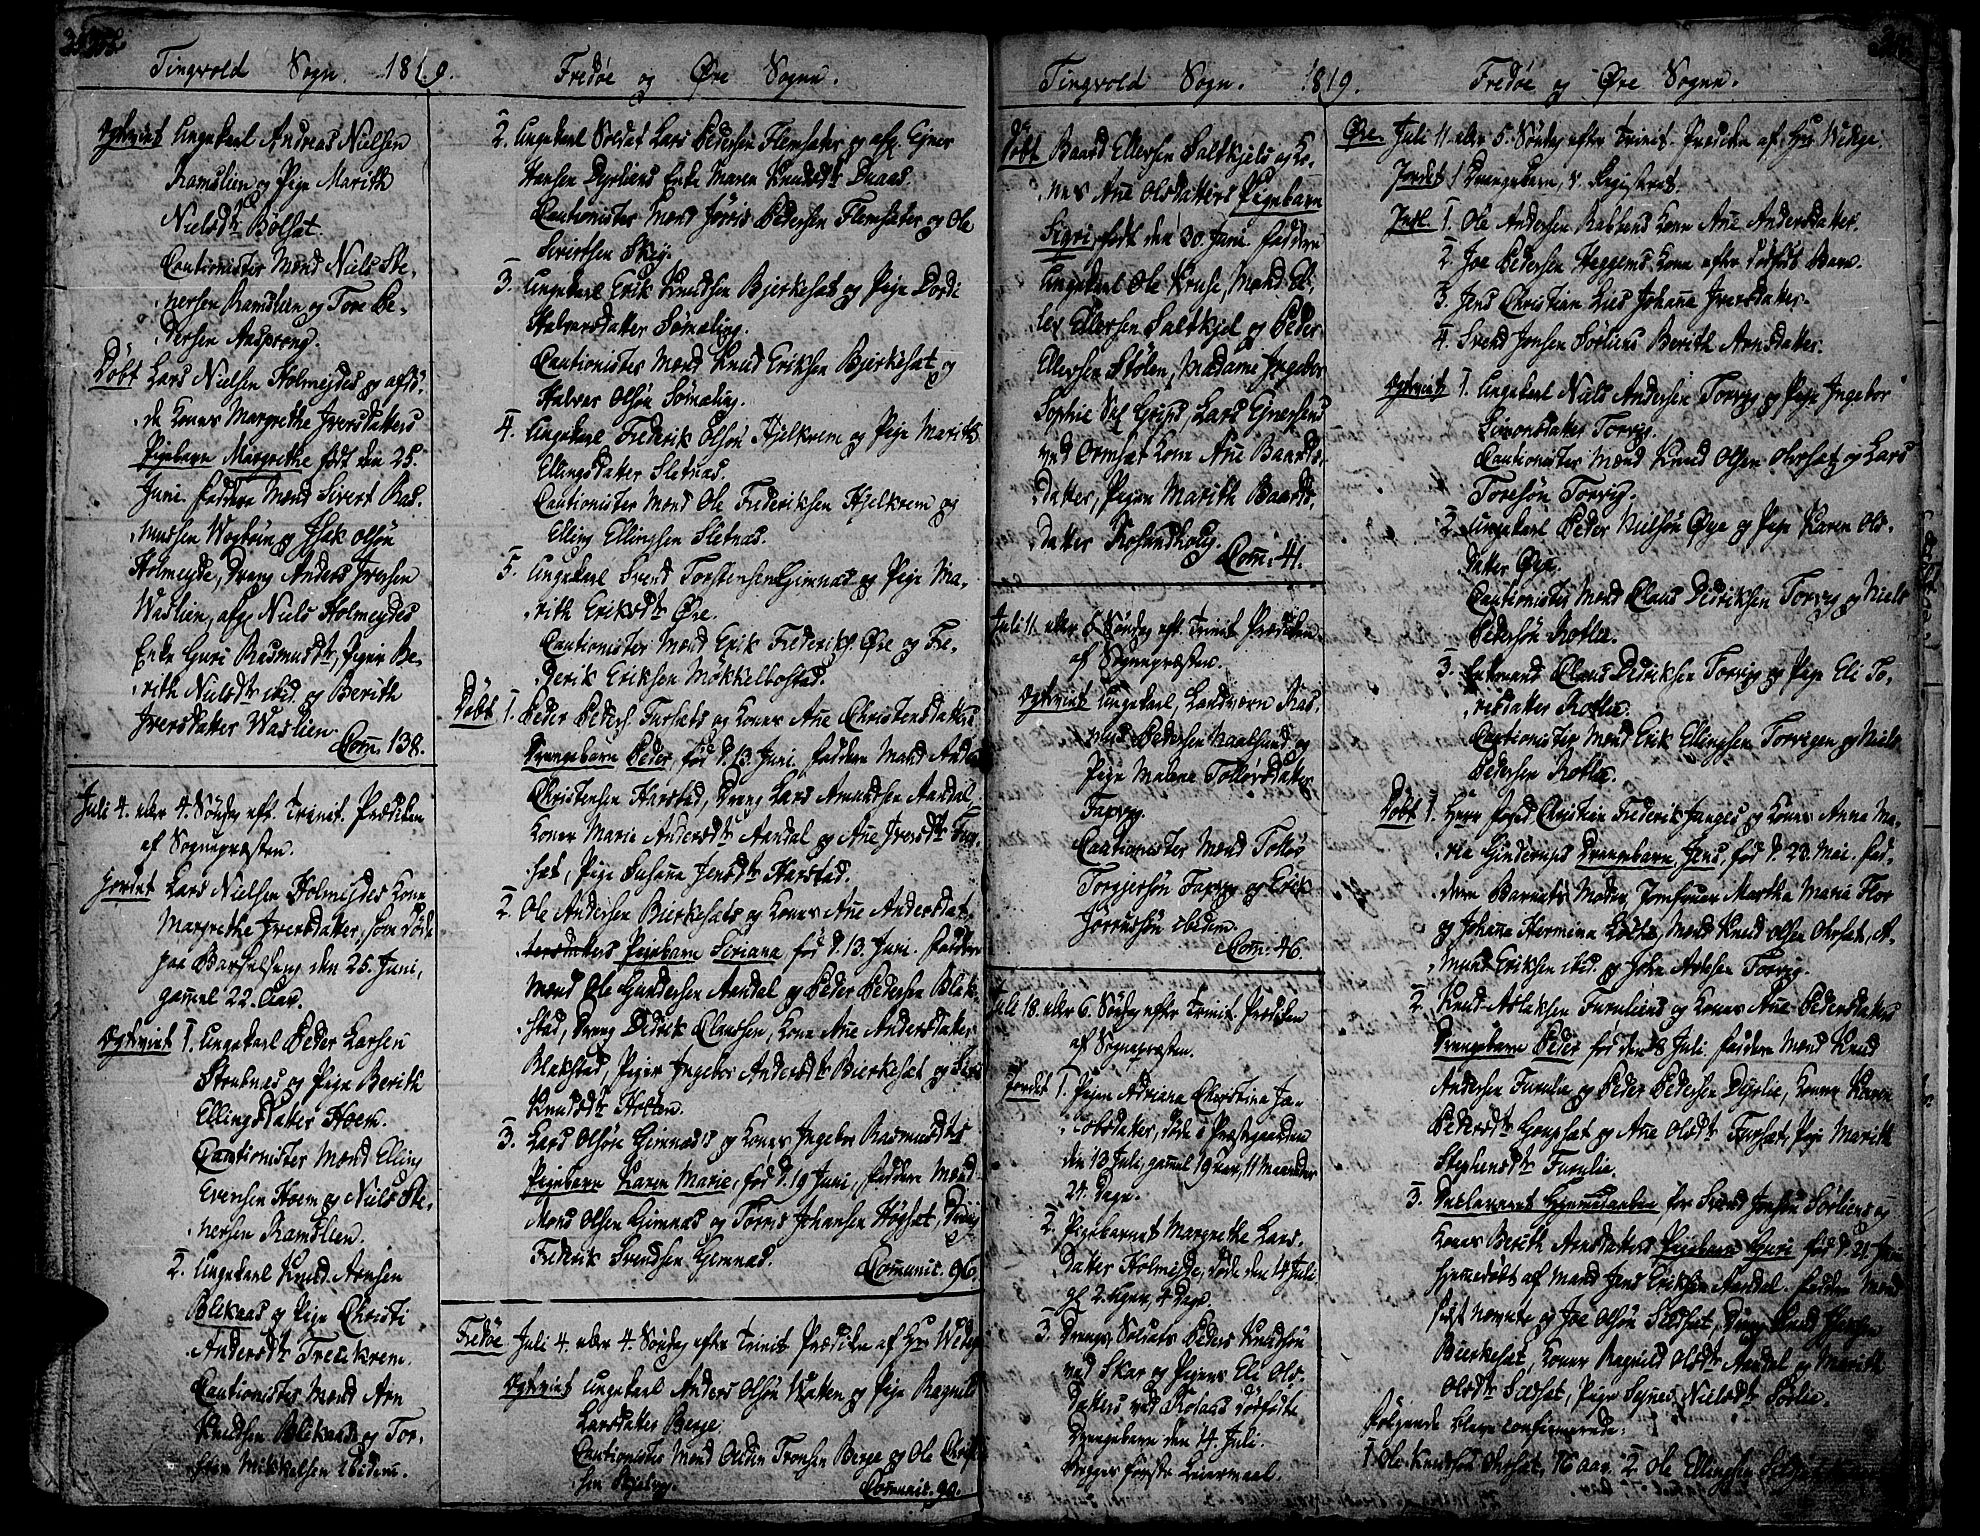 Tingvold Sogn. 1819.
Ægtviet Ungekarl Andreas Nielsen
Ramslien og Pige Marith
Nielsdtr Bølsæt.
Cautionister Mænd Niels Ste-
nersen Ramslien og Tore Pe-
dersen Aasprong.
Døbt Lars Nielsen Holmeydes og afdø-
de Kones Margrethe Iversdatters
Pigebarn Margrethe født den 25.
Juni. Faddere Mænd Sivert Ras-
mussen Wogbøe og Isak Olsøn
Holmeyde, Dreng Anders Iversen
Waslien, afg. Niels Holmeydes
Enke Guri Rasmusdtr, Piger Be-
rith Nielsdtr ibid. og Berith
Iversdatter Waslien.
Com. 138.
Juli 4. eller 4. Søndag eft. Trinit. Prædiken
af Sognepræsten.
Jordet Lars Nielsen Holmeydes Kone
Margrethe Iversdatter, som døde
paa Barselseng den 25. Juni,
gammel 22. Aar.
Ægtviet 1. Ungekarl Peder Larsen
Strutnæs og Pige Berith
Ellingsdatter Hoem.
Cautionister Mænd Elling
Evensen Hoem og Niels Ste-
nersen Ramslien.
2. Ungekarl Knud Arnsen
Blekaas og Pige Christi
Andersdtr Tredikrem.
Cautionister Mænd Arn
Knudsen Blekaas og Tor-
sten Mikkelsen ibidem.
Fredøe og Øre Sogne.
2. Ungekarl Soldat Lars Pedersen Flemsæter og afg. Ejner
Hansen Dyrliens Enke Maren Knudsdtr Duaas.
Cautionister Mænd Jørris Pedersen Flemsæter og Ole
Sivertsen Skej.
3. Ungekarl Erik Knudsen Bjerkesæt og Pige Dordi
Halvorsdatter Sømeling.
Cautionister Mænd Knud Eriksen Bjerkesæt og
Halvor Olsøn Sømeling.
4. Ungekarl Frederik Olsøn Hjelkrem og Pige Marith
Ellingsdatter Sletnæs.
Cautionister Mænd Ole Frederiksen Hjelkrem og
Elling Ellingsen Sletnæs.
5. Ungekarl Svend Torstensen Gimnæs og Pige Ma-
rith Eriksdtr Øre.
Cautionister Mænd Erik Frederiks. Øre og Fre-
derik Eriksen Møkkelbostad.
Døbt 1. Peder Peders. Fursæts og Kones Ane Christensdatters
Drengebarn Peder, fød d. 13. Juni. Faddere Mænd Anders
Christensen Harstad, Dreng Lars Amundsen Aandal,
Koner Marie Andersdtr Aandal og Ane Iversdtr Fur-
sæt, Pige Susana Jensdtr Harstad.
2. Ole Andersen Bierkesæts og Kones Ane Andersdat-
tersdatters Pigebarn Seriana fød d. 13. Juni. Faddere
Mænd Ole Gundersen Aandal og Peder Pedersen Blek-
stad, Dreng Didrik Claussen, Kone Ane Andersdatter
Blekstad, Piger Ingebor Andersdtr Bierkesæt og
Knudsdtr Holten.
3. Lars Olsøn Gimnæs's og Kones Ingebor Rasmusdtrs
Pigebarn Karen Marie, fød d. 19 Juni, Faddere Mænd
Mons Olsen Gimnæs og Torris Johansen Høgset, Dreng
Frederik Svendsen Gimnæs.
Communic. 96.
Fredøe Juli 4. eller 4. Søndag efter Trinit. Prædiken af Hr. Wedege
Ægtviet Ungekarl Anders Olsøn Watten og Pige Ragnild
Larsdatter Berge.
Cautionister Mænd Oldin Tronsen Berge og Ole
sen Skjelvig.
Communic. 90.
Tingvold Sogn. 1819.
Døbt Baard Ellersen Saltkjels og Ko-
nes Ane Olsdatters Pigebarn
Sigri, født den 30. Juni. Faddere
Ungekarl Ole Kruse, Mænd El-
ler Ellersen Saltkjel og Peder
Ellersen Stølen, Madame Ingebor
Sophie Sal. Grips, Lars Ejnersens
ved Ormsæt Kone Ane Baards-
datter, Pigen Marith Baards-
datter Rosundhoug.
Com: 41.
Juli 11. eller 5 Søndag eft. Trinit. Prædiken
af Sognepræsten.
Ægtviet Ungekarl, Landværn Ras-
mus Pedersen Naalsund og
Pige Malena Tollørsdatter
Farvyg.
Cautionister Mænd Tollør
Torgersøn Farvyg og Erik
Jorrudsøn ibidem.
Com: 46.
Juli 18. eller 6. Søndag efter Trinit. Prædiken
af Sognepræsten.
Jordet 1. Pigen Adriana Christina Ja-
cobsdatter, døde i Præstegaarden
den 13 Juli, gammel 19 Aar, 11 Maaneder
24. Dage.
2. Pigebarnet Margrethe Lars-
datter Holmeyde, døde den 14 Juli
gl. 2. Uger, 4 Dage.
3. Dreng Soldats Peders Knudsøn
ved Skar og Pigens Eli Ols-
datters ved Rosaas dødfødte
Drengebarn den 14. Juli.
Begges første Leiermaal.
Fredøe og Øre Sogne.
Øre. Juli 11. eller 5. Søndag efter Trinit. Prædiken af Hr. Wedege.
Jordet 1 Drengebarn, v. Registeret.
Intr. 1. Ole Andersen Rabbens Kone Ane Andersdatter.
2. Joe Pedersen Heggems Kone efter dødfødt Barn.
3. Jens Christian Lies Johana Iversdatter.
4. Svend Jonsen Sørliens Berith Arnsdatter.
Ægtviet 1. Ungekarl Niels Andersen Torvig og Pige Ingebor
Simonsdatter Torvig.
Cautionister Mænd Knud Olsen Ohrsæt og Lars
Toresøn Torvig.
2. Ungekarl Peder Nielsøn Øye og Pige Karen Ols-
datter Øye.
Cautionister Mænd Claus Didriksen Torvig og Niels
Pedersøn Rotlie.
3. Enkemand Claus Didriksen Torvig og Pige Eli To-
risdatter Rotlie.
Cautionister Mænd Erik Ellingsen Torvigen og Niels
Pedersen Rotlie.
Døbt 1. Herr Christian Frederik Janges og Kones Anna Ma-
ria Drengebarn, Jens, fød d. 23. Mai. Fad-
dere Barnets Moder, Jomfruer Martha Maria Flor
og Johana Hermina Mænd Knud Olsen Ohrsæt, A-
mund Eriksen ibid. og John Torvig.
2. Knud Aslaksen Furuliens og Kones Ane Pedersdatters
Drengebarn Peder fød den 8 Juli. Faddere Mænd Knud
Andersen Furulie og Peder Pedersen Dyrlie, Koner Karen
Pedersdtr Goupsæt og Ane Olsdtr Fursæt, Pige Marith
Stephensdtr Furulie.
3. Declareret Hjemmedaaben for Svend Jonsøn Sørliens og
Kones Berith Arnsdatters Pigebarn Guri fød d. 21 Juni
hjemmedøbt af Mand Jens Eriksen Aandal. Faddere Mænd
sidst nævnte og Joe Olsøn Sildset, Dreng
Bierkesæt, Koner Ragnild Olsdtr Aandal og Marith
Olsdtr Sildset, Pige Synnev Nielsdtr Sørlie.
Følgende bleve confirmerede:
1 Ole Knudsøn Ohrsæt, 16 Aar. 2. Ole Ellingsen